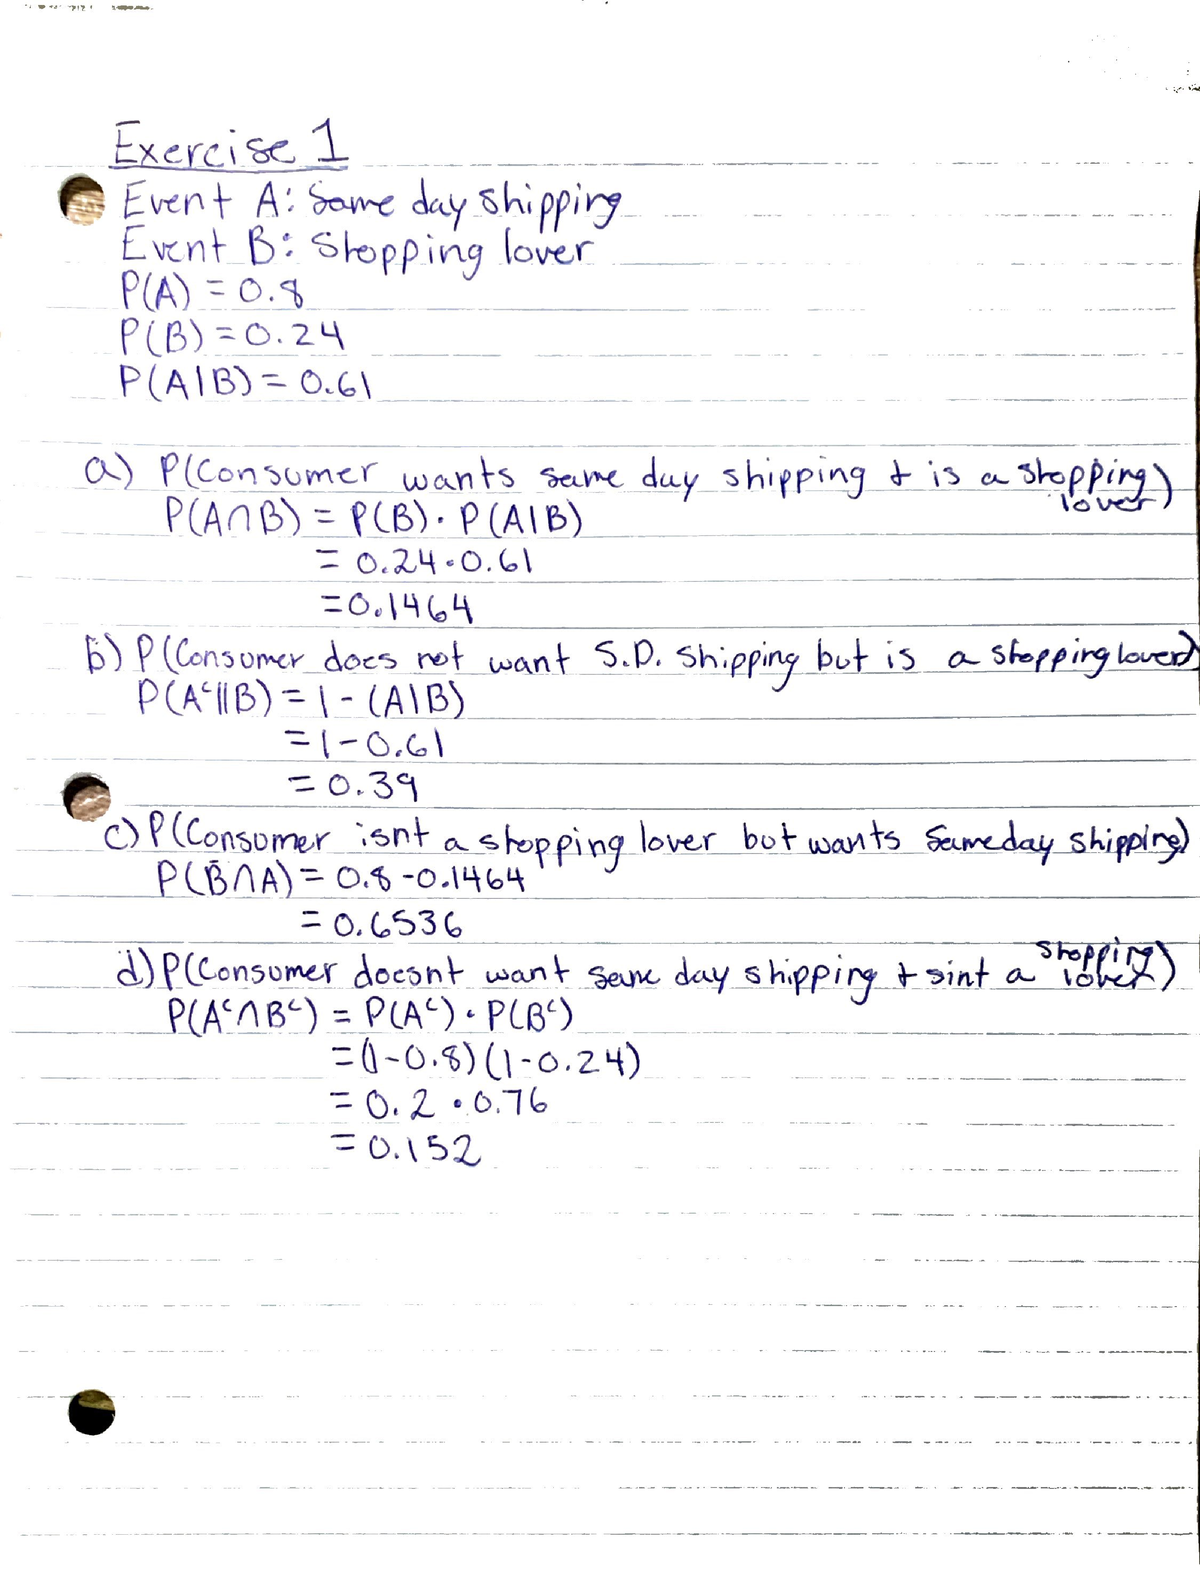 Exercise 1
Event A: Same day shipping
Event B: Shopping lover
P(A) = 0.8
P(B) = 0.24
P(A|B) = 0.61
a) P(Consumer wants same day shipping + is a shopping lover)
P(A∩B) = P(B) · P(A|B)
= 0.24 · 0.61
= 0.1464
b) P(Consumer does not want S.D. shipping but is a shopping lover)
P(Aᶜ||B) = 1 - (A|B)
= 1 - 0.61
= 0.39
c) P(Consumer isnt a shopping lover but wants sameday shipping)
P(B̄∩A) = 0.8 - 0.1464
= 0.6536
d) P(Consumer doesnt want same day shipping + sint a shopping lover)
P(Aᶜ∩Bᶜ) = P(Aᶜ) · P(Bᶜ)
= (1-0.8)(1-0.24)
= 0.2 · 0.76
= 0.152